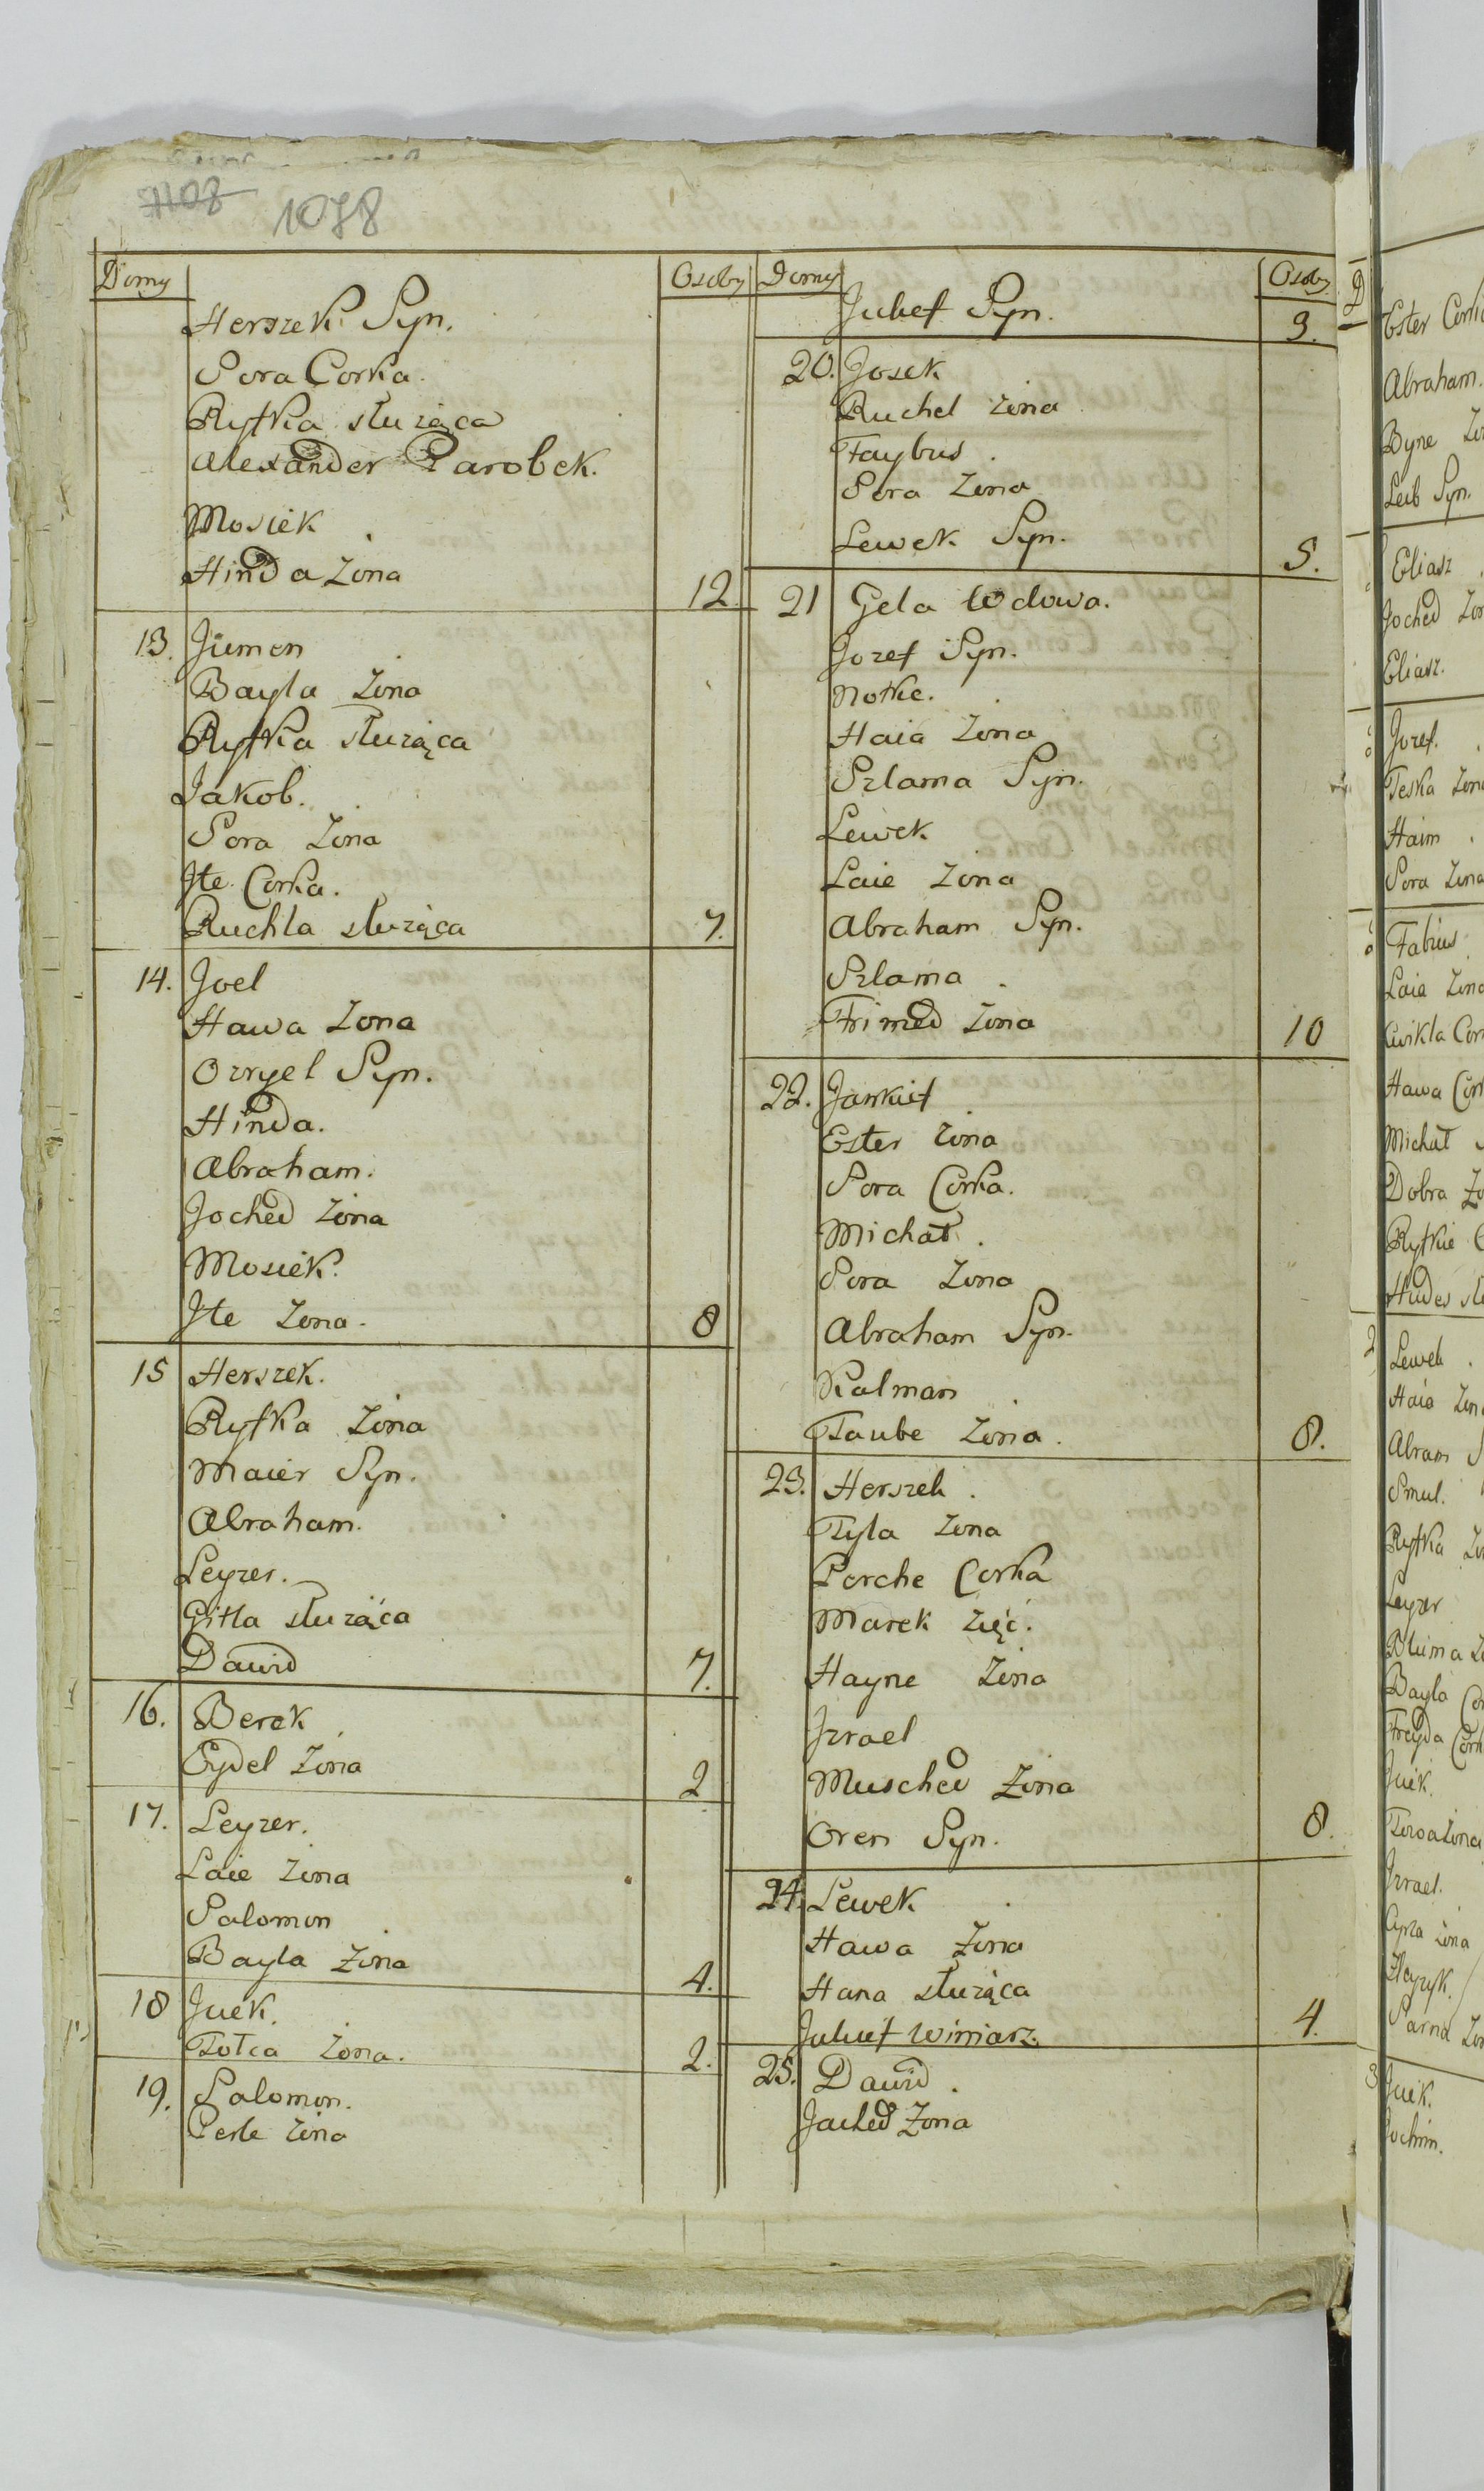 1108 1078
Domy Osoby
Herszek Syn.
Sora Corka.
Ryfka służąca
Alexander Parobek.
Mosiek.
Hinda Zona 12
13. Jumen
Bayla Zona
Ryfka służąca
Jakob.
Sora Zona
Jte Corka.
Ruchla służąca 7.
14. Joel
Hawa Zona
Ozryel Syn.
Hinda.
Abraham.
Joched Zona
Mosiek.
Jte Zona. 8
15 Herszek.
Ryfka Zona
Maier Syn.
Abraham.
Leyzer.
Gitla służąca
Dawid 7.
16. Berek
Eydel Zona 2
17. Leyzer.
Laie Zona
Salomon
Bayla Zona 4.
18 Jcek.
Tolca Zona. 2.
19. Salomon.
Perle Zona
Domy Osoby
Juhef Syn. 3.
20. Josek
Ruchel Zona
Faybus.
Sora Zona
Lewek Syn. 5.
21 Gela Wdowa.
Jozef Syn.
Notke.
Haia Zona
Szlama Syn.
Lewek
Laie Zona
Abraham Syn.
Szlama.
Frimed Zona 10
22. Jankief
Ester Zona
Sora Corka.
Michał.
Sora Zona
Abraham Syn.
Kalman
Taube Zona. 8.
23. Herszek.
Tyla Zona
Porche Corka
Marek Zięć.
Hayne Zona
Jzrael
Musched Zona
Oren Syn. 8.
24. Lewek
Hawa Zona
Hana służąca
Juhuf Winiarz. 4.
25. Dawid.
Jached Zona
D
Ester
Abraham.
Byne
Leib Syn.
Eliasz
Joched
Eliasz.
Jozef.
Teska Zona
Haim
Sora Zona
Fabius
Laia Zona
Cwikla
Hawa
Michał
Dobra
Ryfkie
Hudes
Lewek
Haia
Abram
Smul.
Ryfka
Leyzer
Bluma
Bayla
Freyda
Jcek.
Zona
Jzrael.
Cyrla Zona
Sarna
Jcek.
Jochim.